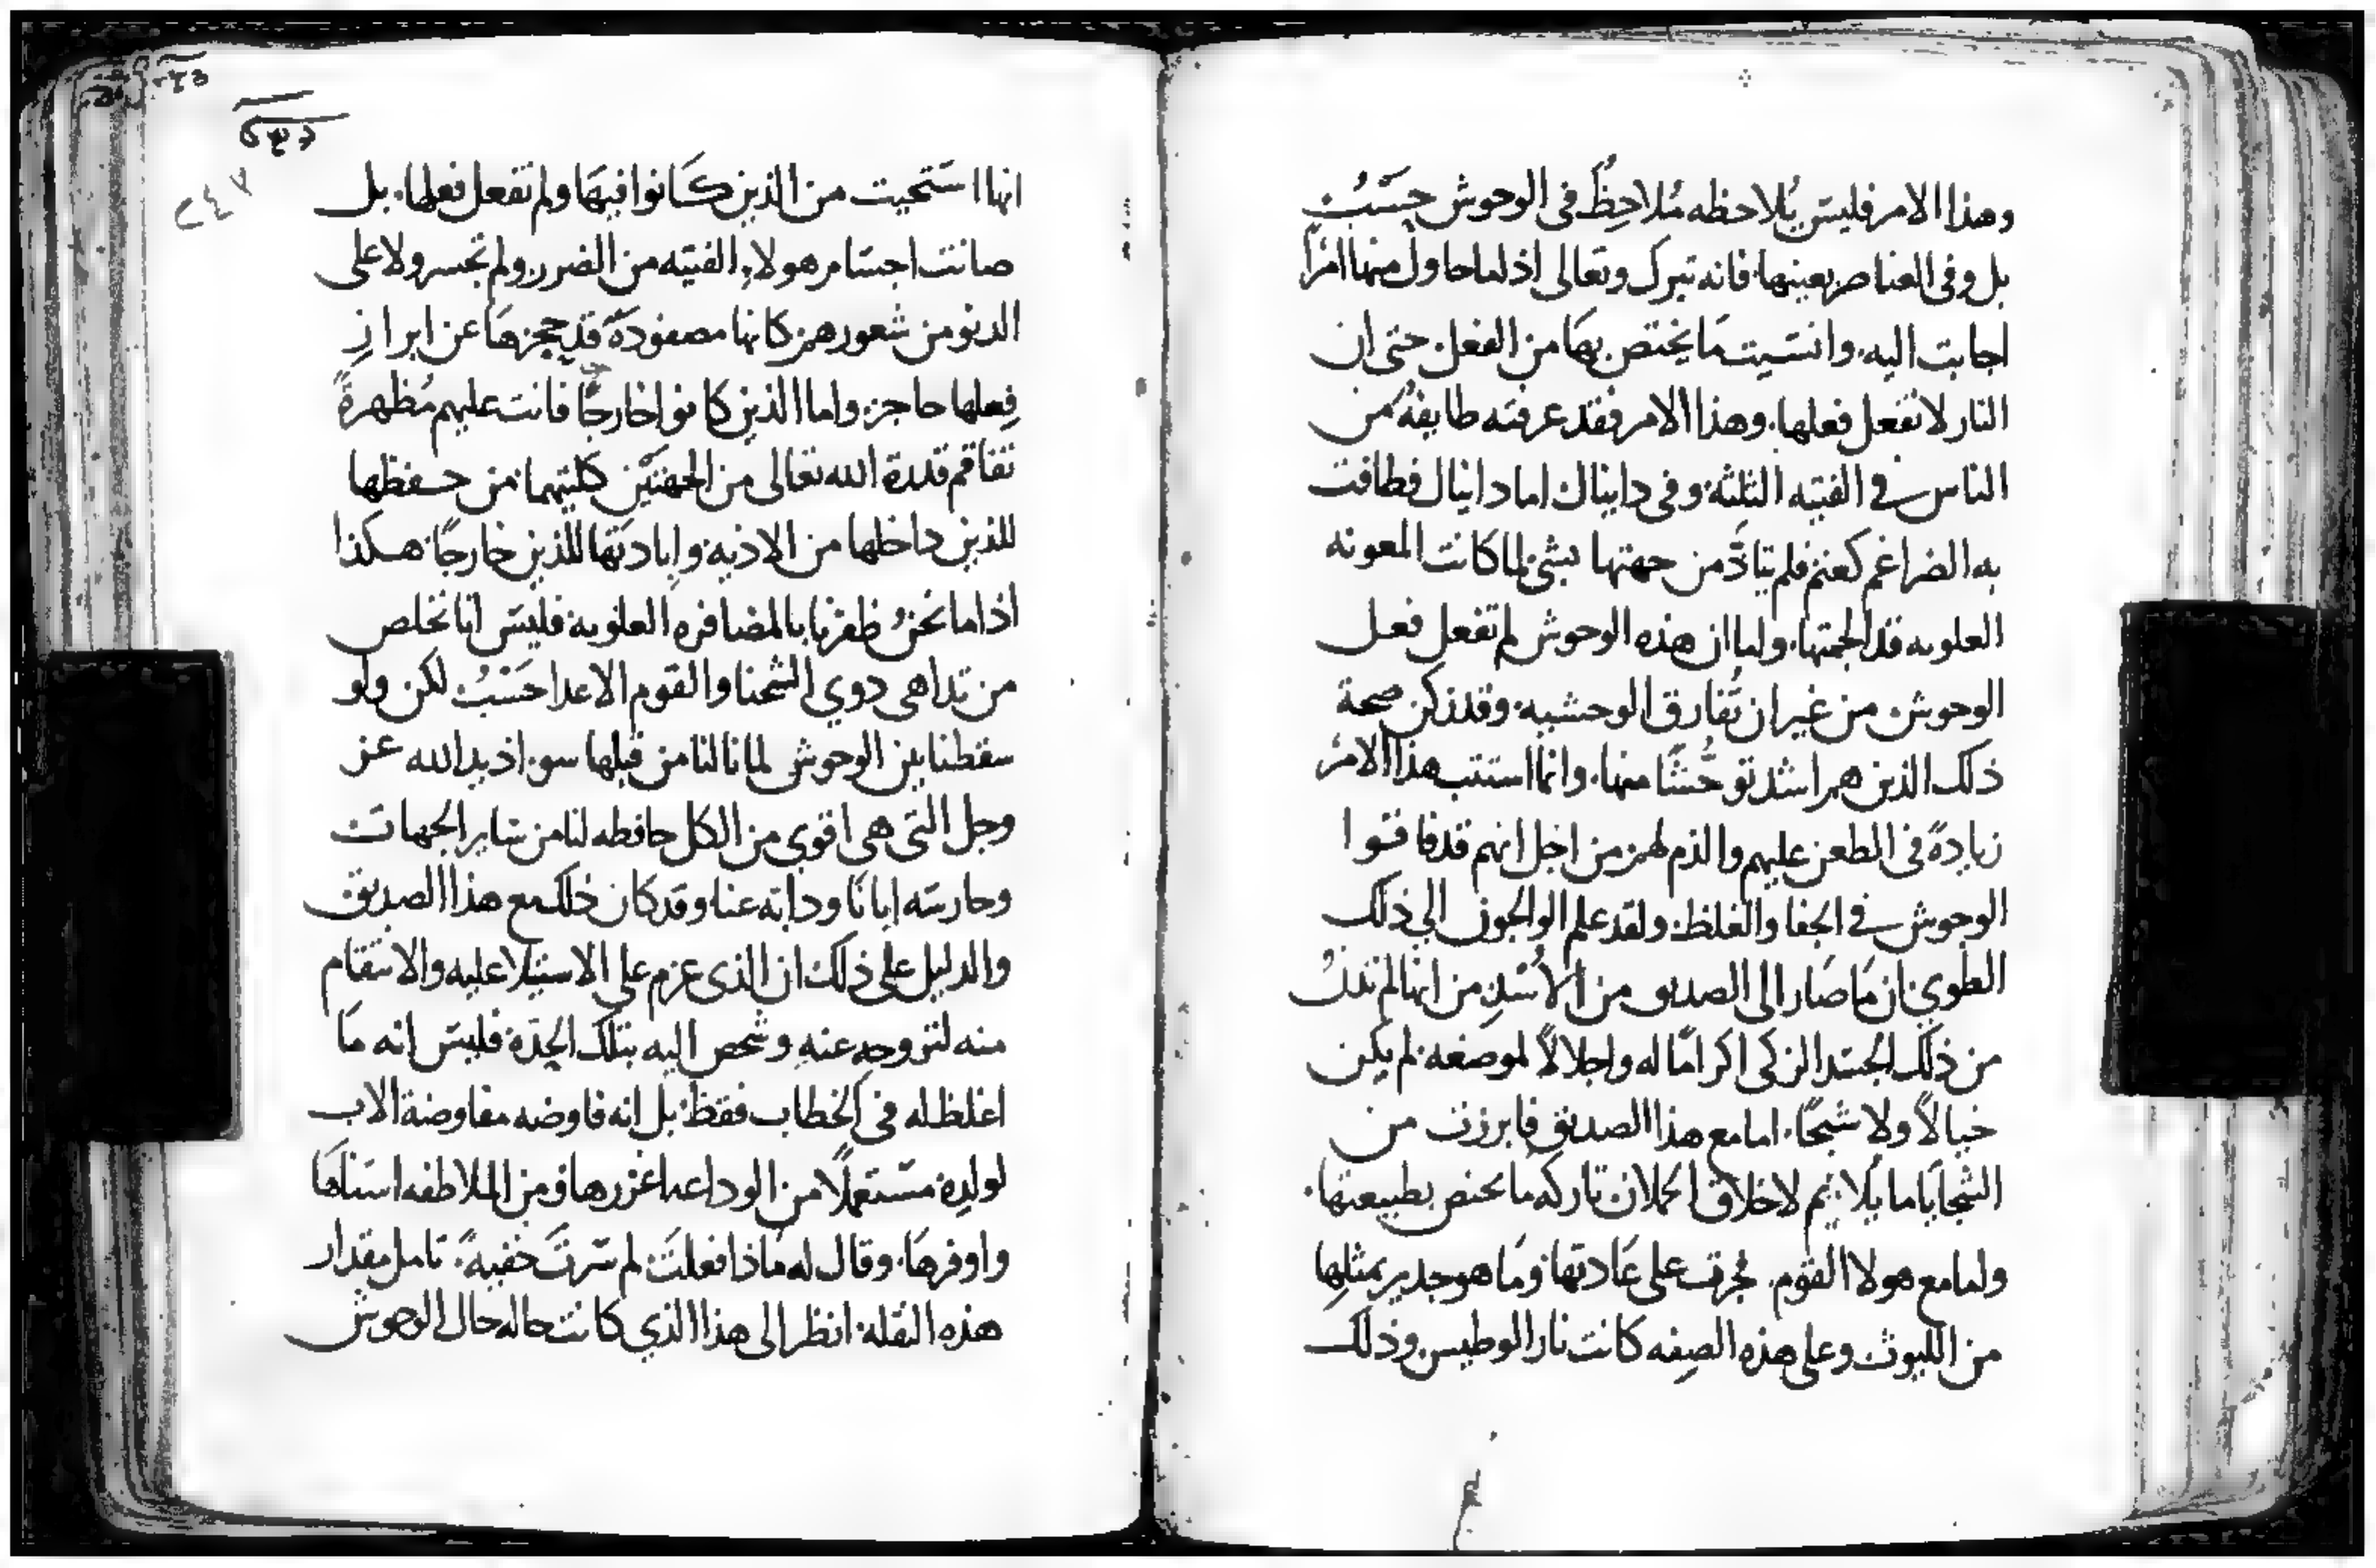 وهذا الامر فليس يُلاحظه مُلاحِظُ في الوحوش حسَبُ
بل وفي العناصر بعينها. فانه تبرك وتعالى اذ لما حاول منها امرًا
اجابت اليه. وانسيت مَا يختص بهَا من الفعل. حتى ان
النار لا تفعل فعلها. وهذا الامر فقد عرفته طايفةُ من
الناس في الفتيه الثلثه. وفي دانيال اما دانيال فطافت
به الضراغم كعنم فلم يتاذَّ من جهتها بشئ لما كانت المعونه
العلويه قد الجمتها. ولما ان هذه الوحوش لم تفعل فعل
الوحوش من غير ان تُفارق الوحشيه. وقد زكن صحة
ذلك الذين هم اشد توحُّشًا منها. وانما استتب هذا الامرُ
زيادةً في الطعن عليهم والذم لهم من اجل انهم قد فاقوا
الوحوش في الجفا والغلظ. ولقد علم الوالجون الي ذلك
الطوي ان مَا صَار الى الصديق من الاُسْدِ من انها لم تدنُ
من ذلك الجسَد الزكى اكرامًا له واجلالاً لموضعه. لم يكن
خيالاً ولا شبحًا. اما مع هذا الصديق فابرزت من
الشجايَا ما يُلايم لاخلاق الحملان تاركه ما يختص بطبيعتها.
ولما مع هولا القوم. فجرت على عَادتها. ومَا هو جدير بمثلِها
من الليوث وعلى هذه الصِفه كانت نار الوطيس. وذلك
٢٤٧
انها استَحيت من الذين كَانوا فيهَا ولم تفعل فعلها. بل
صانت اجسَام هولاء الفتيه من الضرر. ولم تجسر ولا على
الدنو من شعورهم. كانها مصفودَةً قد حجزهَا عن ابرازِ
فِعلها حاجز. واما الذين كانوا خارجًا فانت عليهم مُظهرةً
تفاقم قدرة الله تعالى من الجهتَيْن كلتيهما. من حفظها
للذين داخلها من الاذيه. وإبادتها للذين خارجًا. هكذا
اذا ما نحنُ ظفرنا بالمضافره العلويه. فليسَ انا نخلص
من تداهى دوي الشحنا والقوم الاعدا حَسَبُ. لكن ولو
سقطنا بين الوحوش لما نالنا من قبلها سو. اذ يد الله عز
وجل التي هي اقوي من الكل حافظه لنا من سَاير الجهات
وحارسَه ايانَا وذابّه عنا. وقد كان ذلك مع هذا الصديق
والدليل على ذلك ان الذى عزم على الاستيلا عليه والانتقام
منه لنزوحِه عنهِ وشخص اليه بتلك الحِدّه. فليسَ انه مَا
اغلظ له في الخطاب فقط. بل انه فاوضه مفاوضة الاب
لولدِه. مسَتعملاً من الوداعه اغزرها. ومن الملاطفه اسنَاهَا
واوفرهَا. وقال له مَاذا فعلتَ. لم سَرتَ خفيهً. تامل مقدار
هذه النقله. انظر الى هذا الذي كانت حاله حال الوحوش